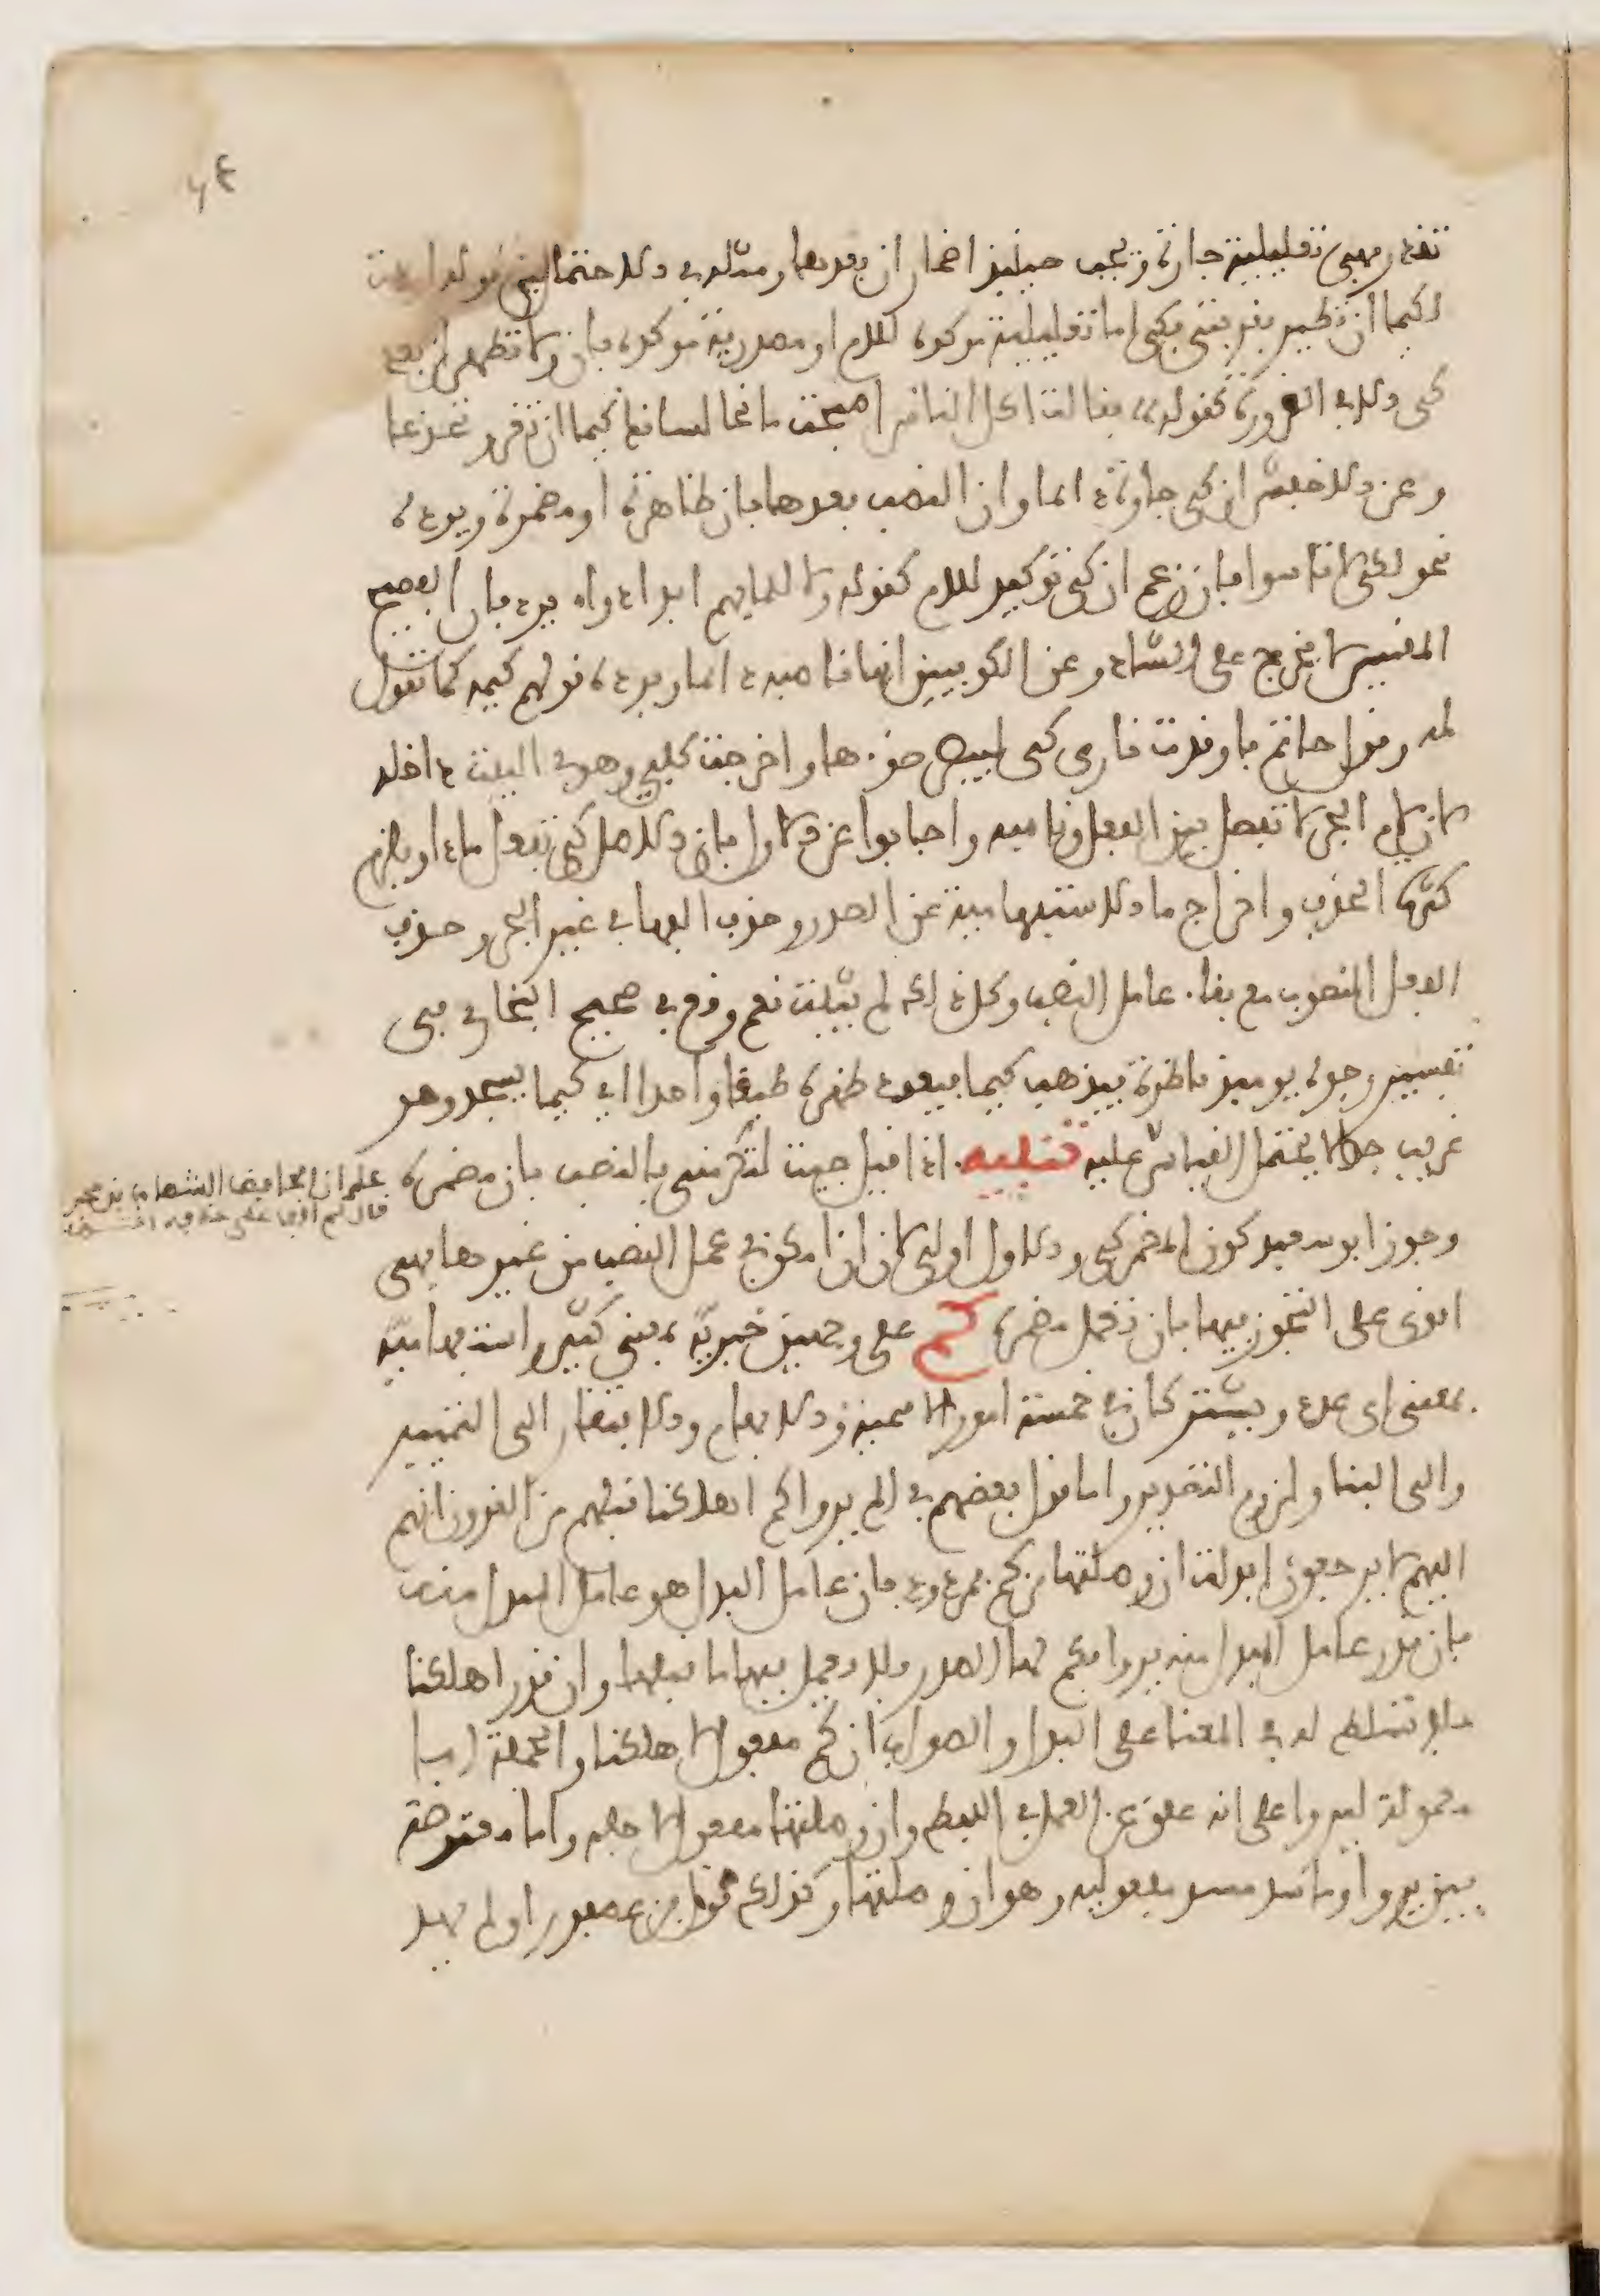 تقدر فهي تعليلية جارة ويجب حينئذ اضمار ان بعدها ومثله في ذلك الاحتمالين قوله اردت
لكيما ان تطير بقربتي فكي اما تعليلية موكدة للام او مصدرية موكدة بان ولا تظهر ان بعد
كي الا في الضرورة كقوله فقالت اكل الناس اصبحت مانحا لسانك كيما ان تغر وتخدعا
وعن الاخفش ان كي جارة دائما وان النصب بعدها بان ظاهرة او مضمرة ويرده
نحو لكي لا تاسوا فان زعم ان كي توكيد للام كقوله ولا للما بهم ابدا دواء يرده بان الفصيح
المقيس لا يخرج على الشاذ وعن الكوفيين انها ناصبة دائما ويرده قولهم كيمه كما تقول
لمه وقول حاتم فاوقدت ناري كي ليبصر ضوءها واخرجت كلبي وهو في البيت داخله
لان لام الجر لا تفصل بين الفعل وناصبه واجابوا عن الاول بان الاصل كي تفعل ماذا ويلزمهم
كثرة الحذف واخراج ما الاستفهامية عن الصدر وحذف الفها في غير الجر وحذف
الفعل المنصوب مع بقاء عامل النصب وكل ذلك لم يثبت نعم وقع في صحيح البخاري في
تفسير وجوه يومئذ ناضرة فيذهب كيما فيعود ظهره طبقا واحدا اي كيما يسجد وهو
غريب جدا لا يحتمل القياس عليه تنبيه اذا قيل جيت لتكرمني بالنصب بان مضمرة
على ان الحافظ الشهاب بن حجر
قال لم اقف على
وجوز ابو سعيد كون المضمر كي والاول اولى لان ان امكن في عمل النصب من غيرها فهي
اقوى على التجوز فيها بان تعمل مضمرة كم على وجهين خبرية بمعنى كثير واستفهامية
بمعنى اي عدد ويشتركان في خمسة امور الاسمية والابهام والافتقار الى التمييز
والبناء ولزوم التصدير واما قول بعضهم في الم يروا كم اهلكنا قبلهم من القرون انهم
اليهم لا يرجعون ابدلت ان وصلتها من كم فمردود بان عامل البدل هو عامل المبدل منه
فان قدر عامل المبدل منه يروا فكم لها الصدر فلا يعمل فيها ما قبلها وان قدر اهلكنا
فلا تسلط له في المعنا على البدل والصواب ان كم مفعول لاهلكنا والجملة اما
معمولة ليروا على انه علق عن العمل في اللفظ وان وصلتها مفعول لاجله واما معترضة
بين يروا وما سد مسد مفعوليه وهو ان وصلتها وكذلك قول ابن عصفور اولم يهد